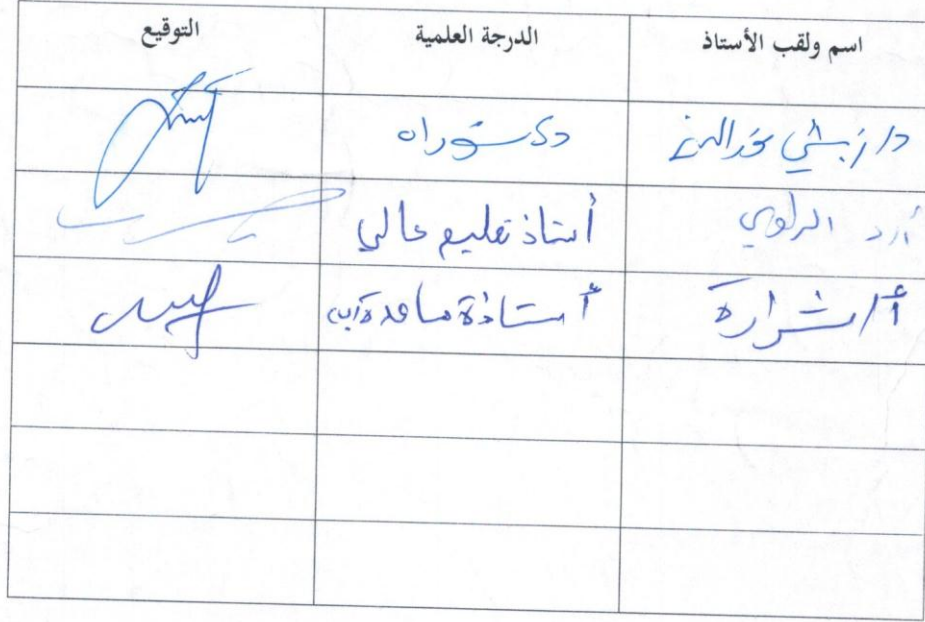 اسم ولقب الأستاذ الدرجة العلمية التوقيع
د/ زبشي دكتوراه
أ.د أستاذ تعليم عالي
أ/ شرارة أستاذة مساعدة